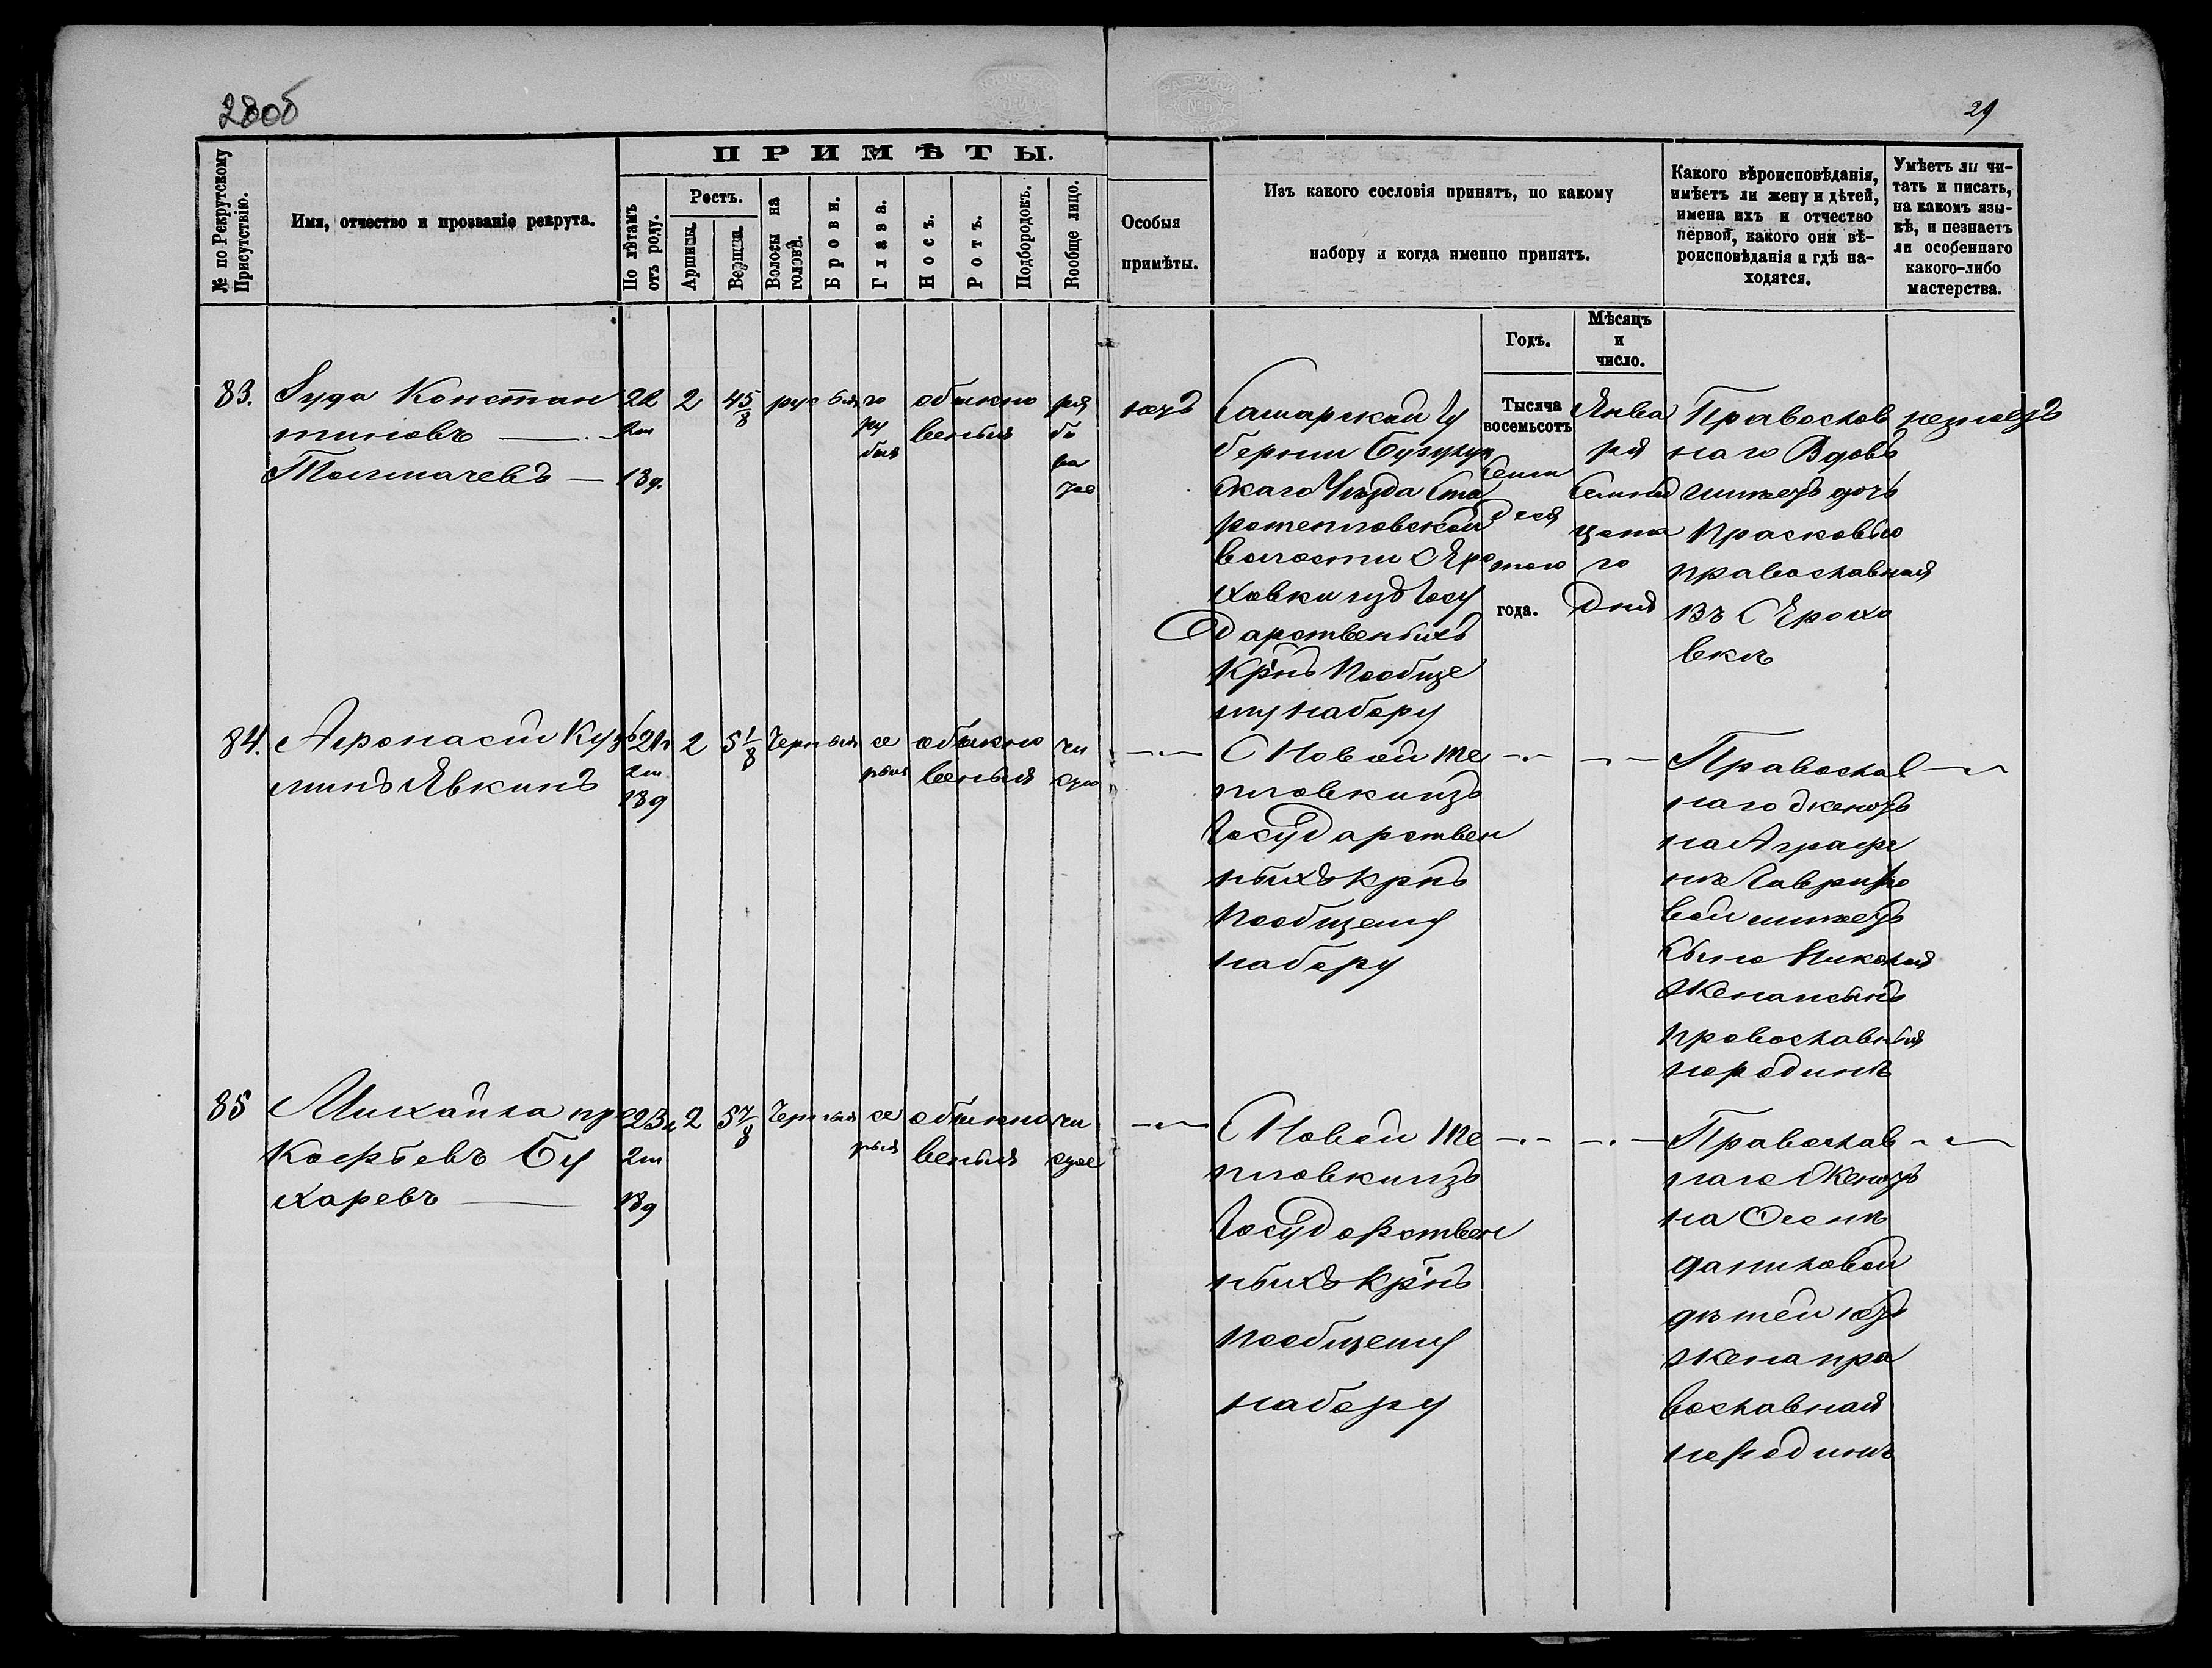 28об
29
№ по Рекрутскому Присутствію.
Имя, отчество и прозваніе рекрута.
ПРИМѢТЫ.
По лѣтамъ отъ роду.
Ростъ.
Аршины.
Вершки.
Волосы на головѣ.
Брови.
Глаза.
Носъ.
Ротъ.
Подбородокъ.
Вообще лицо.
Особыя
примѣты.
Изъ какого сословія принятъ, по какому
набору и когда именно принятъ.
Какого вѣроисповѣданія,
имѣетъ ли жену и дѣтей,
имена ихъ и отчество
первой, какого они вѣ-
роисповѣданія и гдѣ на-
ходятся.
Умѣетъ ли чи-
тать и писать,
на какомъ язы-
кѣ, и незнаетъ
ли особеннаго
какого-либо
мастерства.
Годъ.
Мѣсяцъ
и
число.
83.
Іуда Констан
тиновъ
Толмачевъ
22
2 м
18 д.
2
4 5/8
русыя
го
лу
быя
обыкно
венныя
ря
бо
ва
тое
нетъ
Самарской Гу
берніи Бузулук
скаго Уѣзда Ста
ротепловской
волости С Яро
ховки изъ Госу
дарственныхъ
Крнъ Пообще
му набору
Тысяча
восемьсотъ
Семи
деся
таго
года.
Янва
ря
Семнад
цата
го
дня
Православ
наго Вдовъ
имѣетъ дочь
Прасковью
православная
въ С Ярохо
вкѣ
незнаетъ
84.
Афонасій Кузь
минъ Явкинъ
21 л
2 м
18 д
2
5 1/8
Черныя
се
рыя
обыкно
венныя
чи
стое
С Новой Те
пловки изъ
Государствен
ныхъ крнъ
Пообщему
набору
Православ
наго женатъ
на Аграфе
нѣ Гаврило
вой имѣетъ
сына Николая
жена и сынъ
православныя
народинѣ
85
Михайла Про
кофьевъ Бу
харевъ
23 л
2 м
18 д
2
5 7/8
Черныя
се
рыя
обыкно
венныя
чи
стое
С Новой Те
пловки изъ
Государствен
ныхъ Крнъ
Пообщему
набору
Православ
наго Женатъ
на
Даниловой
дѣтей нетъ
жена пра
вославная
народинѣ